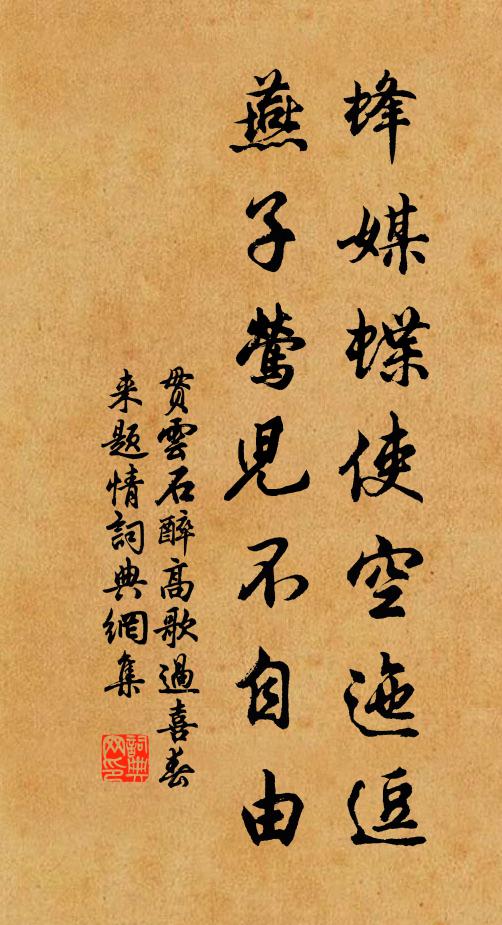 蜂媒蝶使空迤逗
燕子鶯児不自由
貫雲石醉高歌過喜春
来題情詞典網集
詞典网印